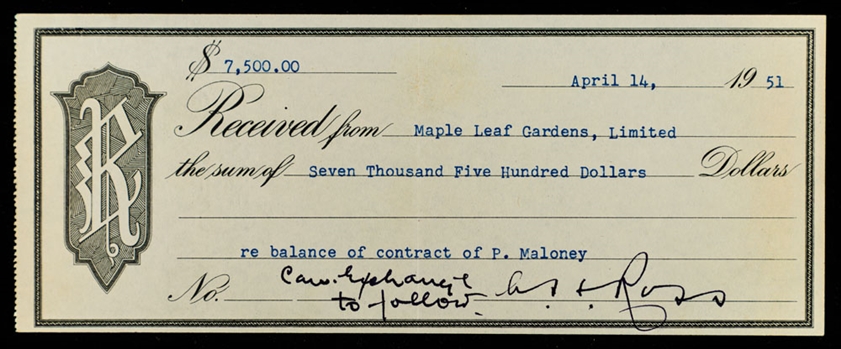 $ 7,500.00
April 14, 19 51
Received from Maple Leaf Gardens, Limited
the sum of Seven Thousand Five Hundred Dollars Dollars
re balance of contract of P. Maloney
Can. Exchange
to follow.
No. A. H. Ross
R